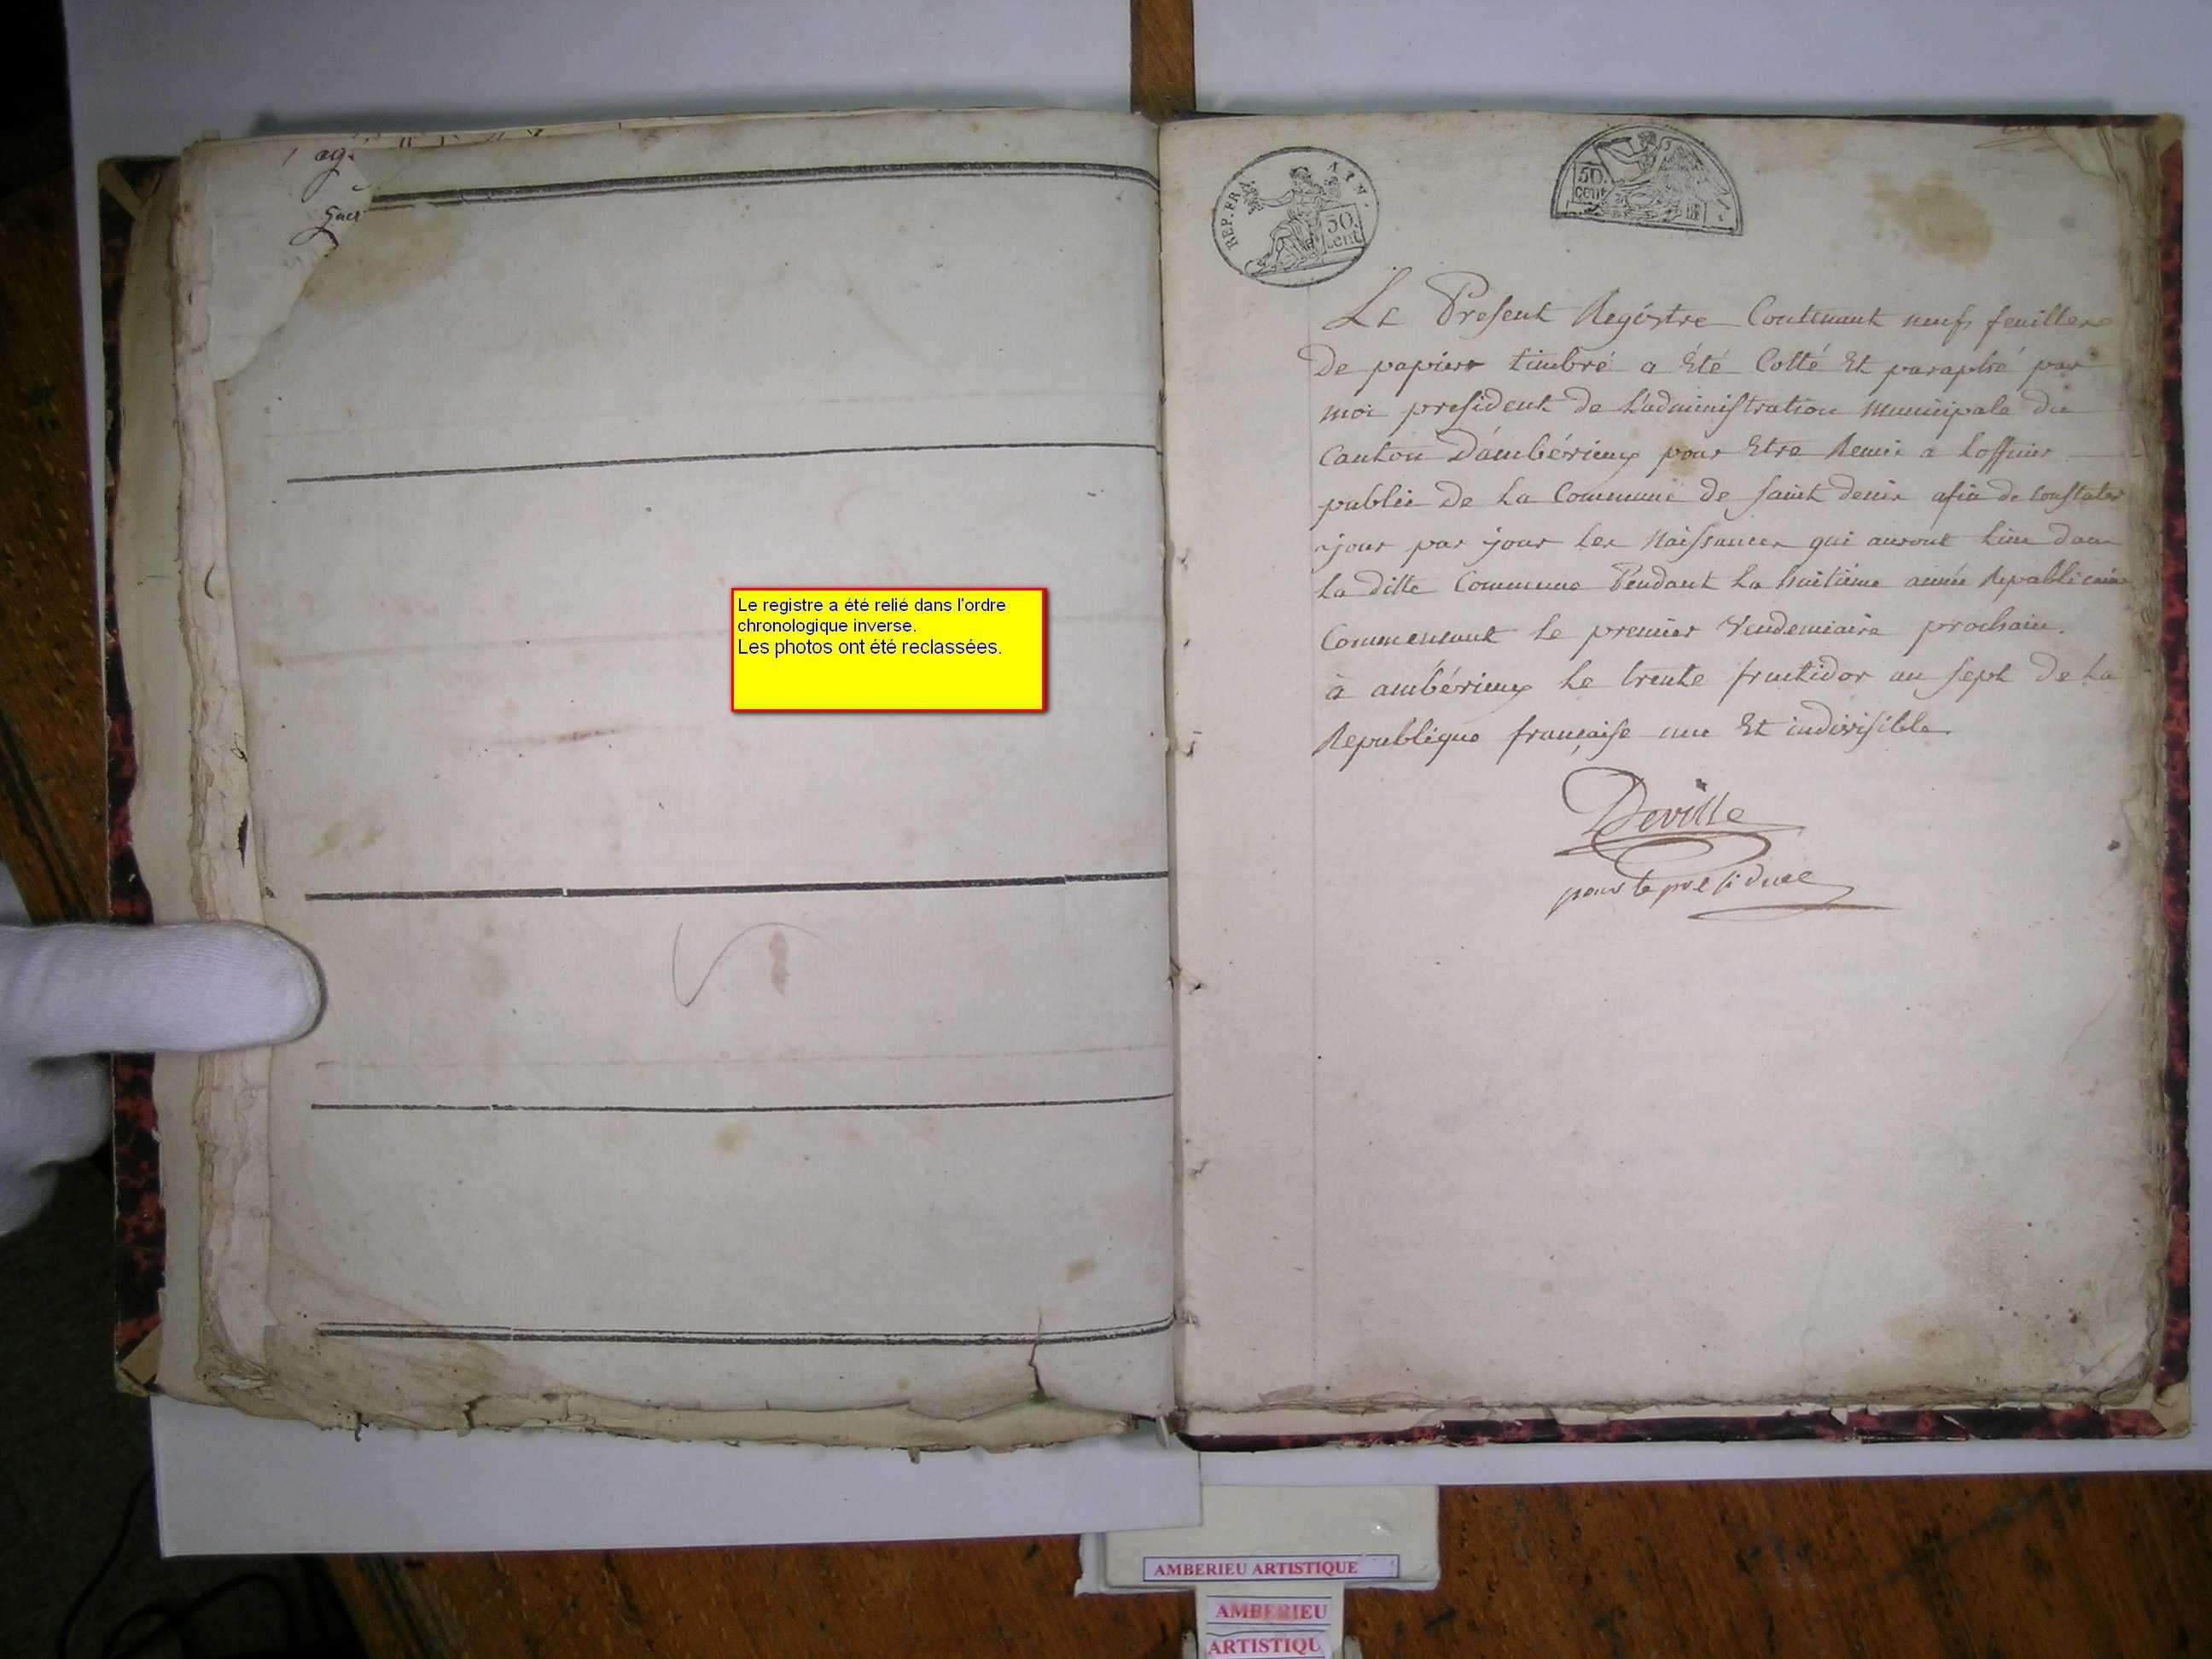 ag.
Le registre a été relié dans l'ordre
chronologique inverse.
Les photos ont été reclassées.
REP. FRA. AIN.
50 cent.
50. cent
Le Present Registre Contenant neuf feuilles
De papier timbré a Été Cotté Et paraphé par
moi president de l'administration Municipale du
Canton D'ambérieux pour Etre Remis a l'officier
public De La Commune de saint denis afin de Constater
jour par jour les Naissances qui auront lieu dans
la ditte Commune Pendant la huitième année Republicaine
Commencant le premier Vendemiaire prochain.
à ambérieux le trente fructidor an sept de la
Republique française une Et indivisible
Deville
pour le president
AMBERIEU ARTISTIQUE
AMBERIEU
ARTISTIQU